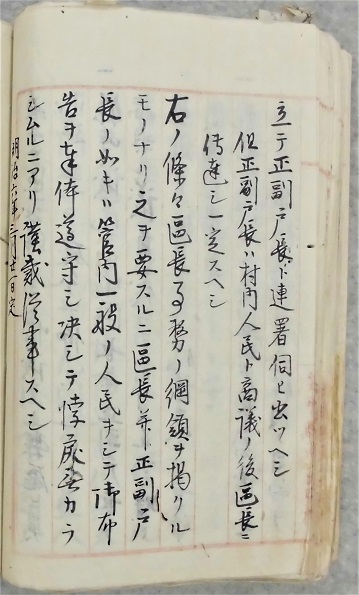 立テ正副戸長ト連署伺ヒ出ツヘシ
但正副戸長ハ村内人民ト商議ノ後区長ニ
傳達シ一定スヘシ
右ノ條々區長事務ノ綱領ヲ掲クル
モノナリ之ヲ要スルニ區長并正副戸
長ノ如キハ管内一般ノ人民ヲシテ御布
告ヲ奉体遵守シ决シテ悖戾無カラ
シムルニアリ謹戒従事スヘシ
明治六年三月廿一日定